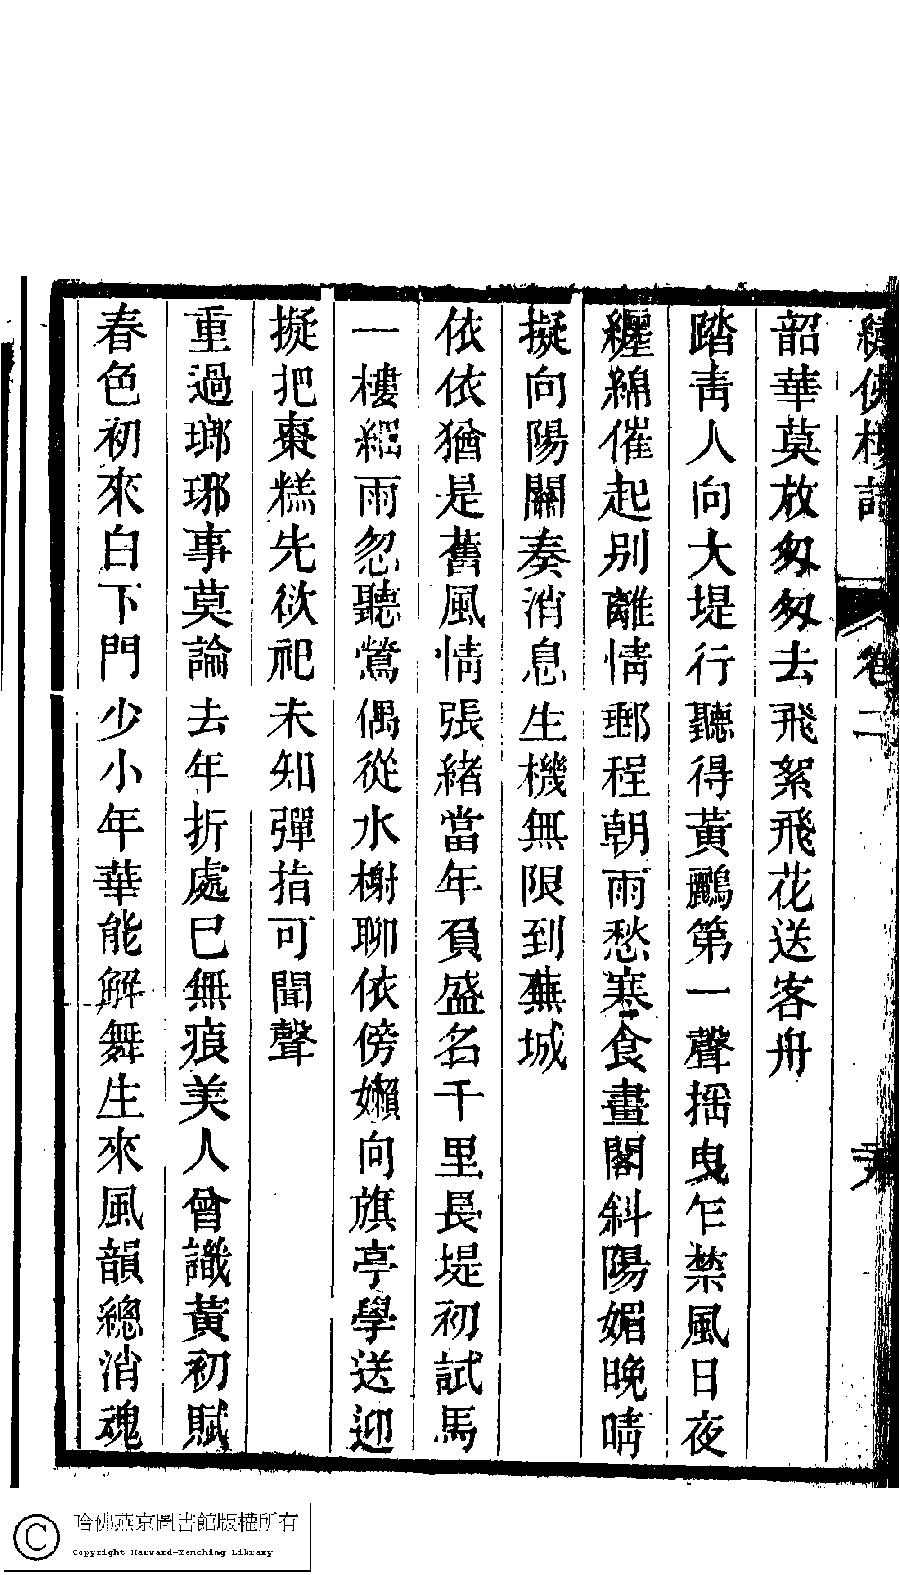 繡佛樓詩 卷二
韶華莫放匆匆去飛絮飛花送客舟
踏青人向大堤行聽得黃鸝第一聲搖曳乍禁風日夜
纏綿催起別離情郵程朝雨愁寒食畫閣斜陽媚晚晴
擬向陽關奏消息生機無限到蕪城
依依猶是舊風情張緒當年負盛名千里長堤初試馬
一樓細雨忽聽鶯偶從水榭聊依傍嬾向旗亭學送迎
擬把棗糕先欲祀未知彈指可聞聲
重過瑯琊事莫論去年折處已無痕美人曾識黃初賦
春色初來白下門少小年華能解舞生來風韻總消魂
哈佛燕京圖書館版權所有
Copyright Harvard-Yenching Library